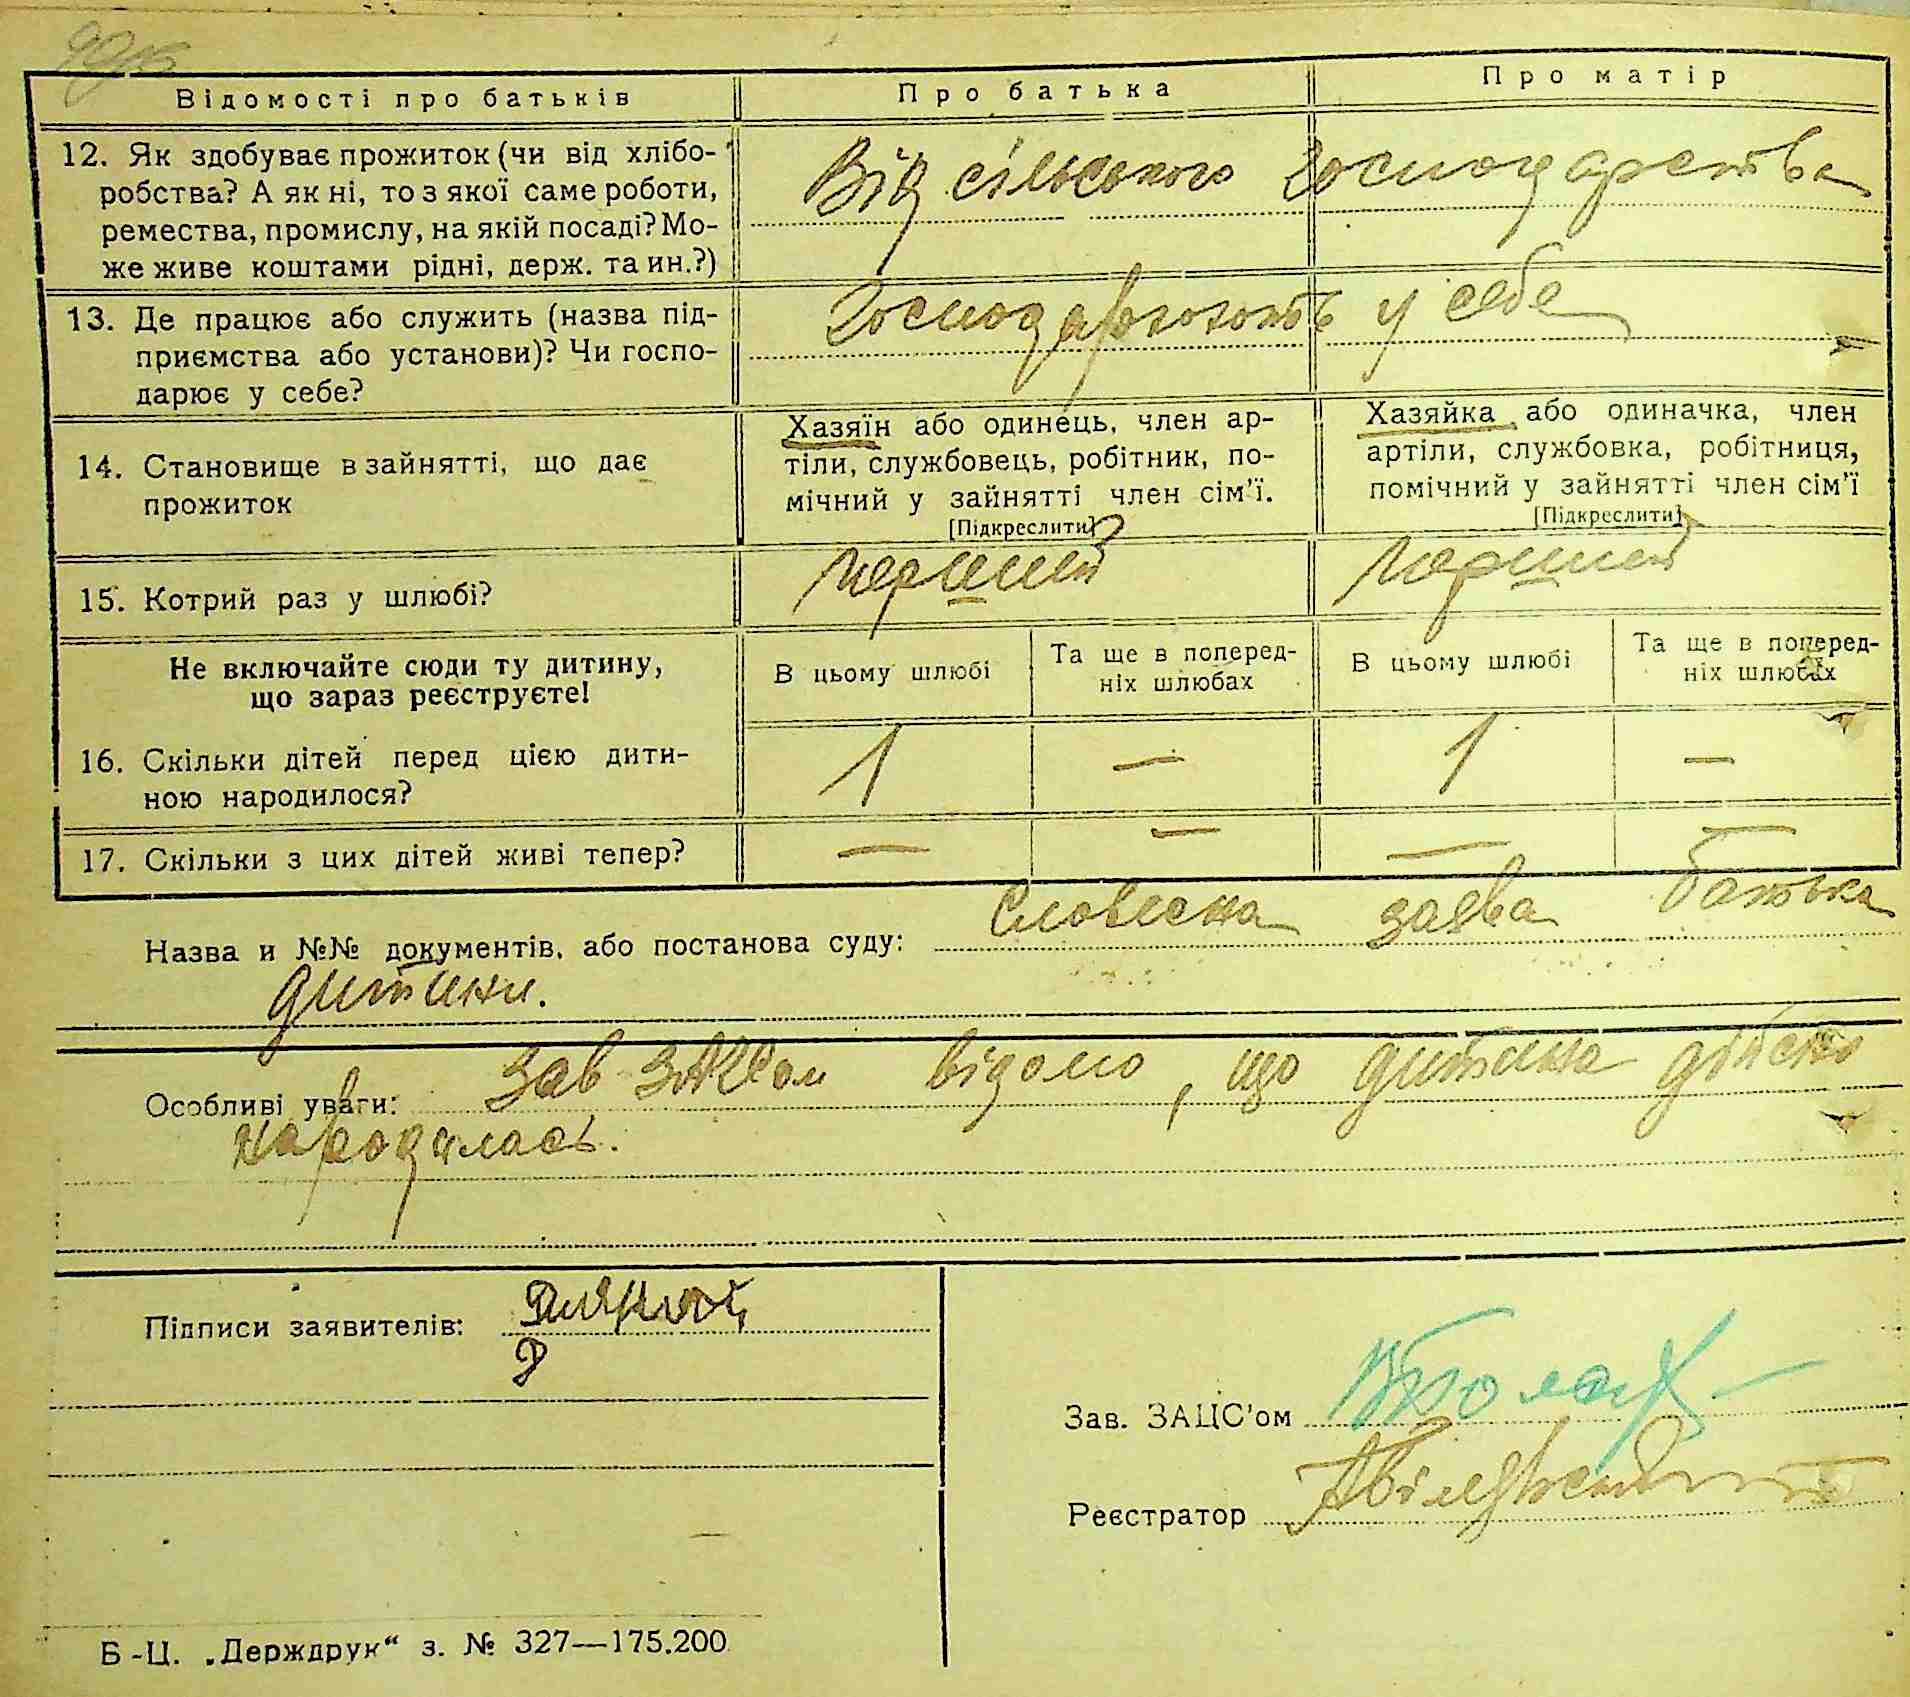 Відомості про батьків
Про батька
Про матір
12. Як здобуває прожиток (чи від хлібо-
робства? А як ні, то з якої саме роботи,
ремества, промислу, на якій посаді? Мо-
же живе коштами рідні, держ. та ин.?)
Від сільського господарства
13. Де працює або служить (назва під-
приємства або установи)? Чи госпо-
дарює у себе?
Господарюють у себе
14. Становище в зайнятті, що дає
прожиток
Хазяїн або одинець, член ар-
тіли, службовець, робітник, по-
мічний у зайнятті член сім'ї.
[Підкреслити]
Хазяйка або одиначка, член
артіли, службовка, робітниця,
помічний у зайнятті член сім'ї
[Підкреслити]
15. Котрий раз у шлюбі?
перший
перший
Не включайте сюди ту дитину,
що зараз реєструєте!
В цьому шлюбі
Та ще в поперед-
ніх шлюбах
В цьому шлюбі
Та ще в поперед-
ніх шлюбах
16. Скільки дітей перед цією дити-
ною народилося?
1 — 1 —
17. Скільки з цих дітей живі тепер?
— — — —
Назва и №№ документів, або постанова суду: Словесна заява батька
дитини.
Особливі уваги: Зав ЗАЦСом відомо, що дитина дійсно
народилась.
Підписи заявителів:
Зав. ЗАЦС'ом
Реєстратор
Б-Ц. „Держдрук“ з. № 327—175.200